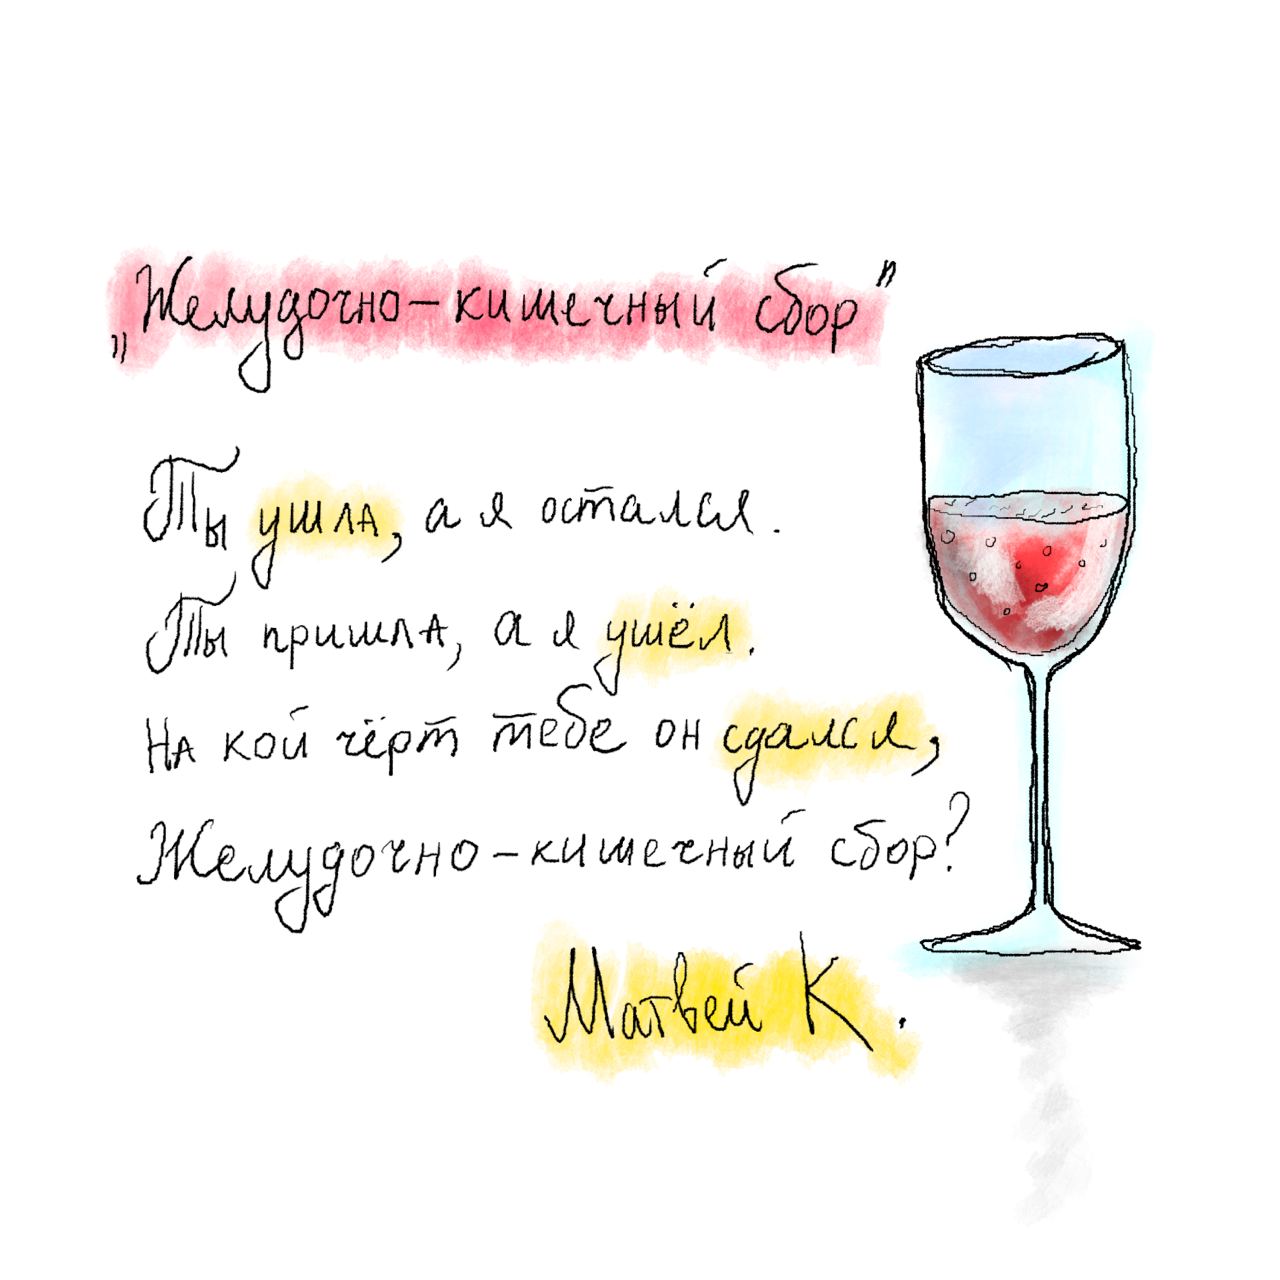 „Желудочно-кишечный сбор"
Ты ушла, а я остался.
Ты пришла, а я ушёл.
На кой чёрт тебе он сдался,
Желудочно-кишечный сбор?
Матвей К.